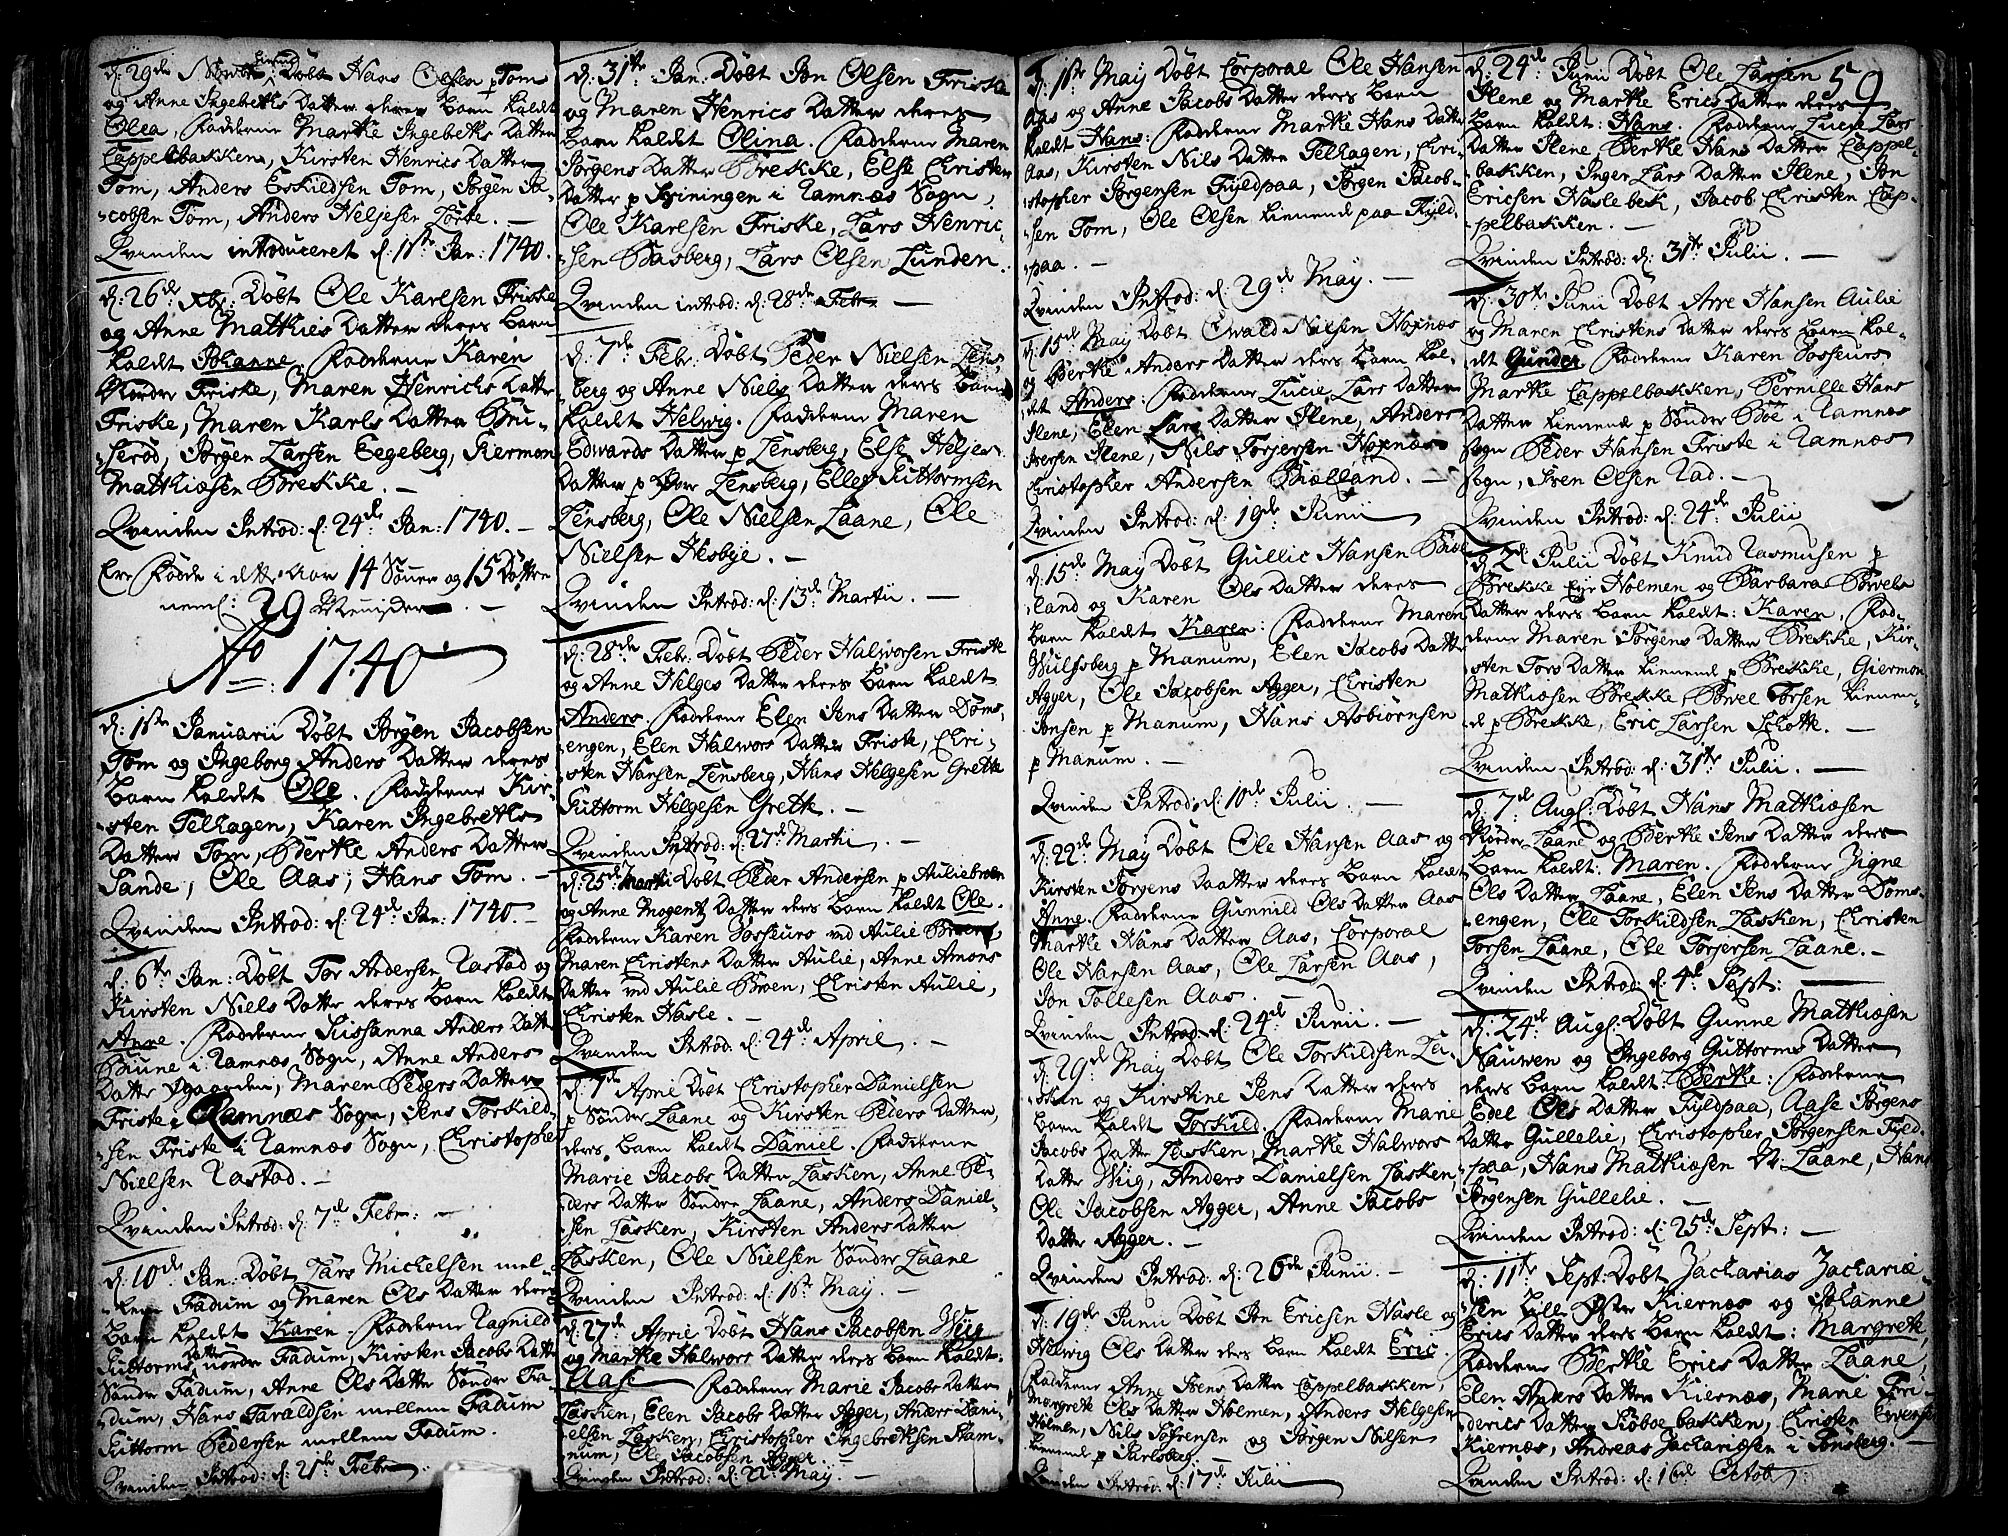 d: 29de Novbr: Döbt Hans Olsen p Tom
og Anne Ingebreths Datter deres Barn kaldt
Olea, Fadderne Marthe Ingebreths Datter
Cappelbakken, Kirsten Henrics Datter
Tom, Anders Eskildsen Tom, Jörgen Ja-
cobsen Tom, Anders Heljesen
Qvinden introduceret d: 1ste Jan: 1740.
d: 26de Xbr: Döbt Ole Karlsen Friske
og Anne Matthies Datter deres Barn
kaldt Johanne Fadderne Karen
Nordre Friske, Maren Henrichs Datter
Friske, Maren Karls Datter Bru-
seröd, Jörgen Larsen Eegeberg, Giermon
Mathiæsen Brekke. —
Qvinden Introd: d: 24de Jan: 1740. —
Ere Födde i dette Aar 14 Sönner og 15 Döttre
neml: 29 Mennisker —
Ao = 1740
d: 1ste Januarii Döbt Jörgen Jacobsen
Tom og Ingeborg Anders Datter deres
Barn kaldt Ole. Fadderne Kir-
sten Telhagen, Karen Ingebreths
Datter Tom, Berthe Anders Datter
Sande, Ole Aas, Hans Tom. —
Qvinden Introd: d: 24de Jan: 1740. —
d: 6te Jan: Döbt Tor Andersen Rastad og
Kirsten Niels Datter deres Barn kaldt
Anne. Fadderne Sussanna Anders Datter
Brune i Ramnæs Sogn, Anne Anders
Datter Ögaarden, Maren Peders Datter
Friste i Ramnæs Sogn, Jens Torkild-
sen Friste i Ramnæs Sogn, Christopher
Nielsen Rastad. —
Qvinden Introd: d: 7de Febr: —
d: 10de Jan: Döbt Lars Michelsen mel-
lem Fadum og Maren Ols Datter deres
Barn kaldt Karen. Fadderne Ragnild
Guttorms datter nordre Fadum, Kirsten Jacobs Datter
Sönder Fadum, Anne Ols Datter Sönder Fa-
dum, Hans Taraldsen mellem Fadum
Guttorm Pedersen mellem Fadum.
Qvinden Introd: d: 21de Febr.
d: 31te Jan: Döbt Jon Olsen Friske
og Maren Henrics Datter deres
Barn kaldt Olina. Fadderne Maren
Jörgens Datter Brekke, Else Christen
Datter p Sviningen i Ramnæs Sogn,
Ole Karlsen Friske, Lars Henric-
sen Basberg, Lars Olsen Lunden.
Qvinden introd: d: 28de Febr. —
d: 7de Febr: Döbt Peder Nielsen Lens-
berg og Anne Niels Datter deres Barn
kaldt Helwig. Fadderne Maren
Edwards Datter p Lensberg, Else Heljes
Datter p Lensberg, Ellef Guttormsen
Lensberg, Ole Nielsen Laane, Ole
Nielsen Hesbye. —
Qvinden Introd: d: 13de Martii. —
d: 28de Febr: Döbt Peder Halworsen Friste
og Anne Helges Datter deres Barn kaldt
Anders. Fadderne Elen Jens Datter Döms-
engen, Elen Halwors Datter Friste, Chri-
sten Hansen Lensberg, Hans Helgesen Grette
Guttorm Helgesen Grette. —
Qvinden Introd: d: 27de Martii. —
d: 25de Martii Döbt Peder Andersen p Auliebroen
og Anne Mogens Datter deres Barn kaldt Ole.
Fadderne Karen Sosseurs ved Aulie Broen,
Maren Christens Datter Aulie, Anne Amons
Datter ved Aulie Broen, Christen Aulie,
Christen Hasle. —
Qvinden Introd: d: 24de April. —
d: 7de April Döbt Christopher Danielsen
p Sönder Laane og Kirsten Peders Datter,
deres Barn kaldt Daniel. Fadderne
Marie Jacobs Datter Lasken, Anne Pe-
ders Datter Sönder Laane, Anders Daniel-
sen Lasken, Kirsten Anders Datter
Lasken, Ole Nielsen Sönder Laane
Qvinden Introd: d: 1ste May. —
d: 27de April Döbt Hans Jacobsen Wiig
og Marthe Halwors Datter deres Barn kaldt
Aase Fadderne Marie Jacobs Datter
Lasken, Elen Jacobs Datter Agger, Anders Dani-
elsen Lasken, Christopher Ingebrethsen Ram-
num, Ole Jacobsen Agger. —
Qvinden Introd: d: 22de May. —
d: 1ste May Döbt Corporal Ole Hansen
Aas og Anne Jacobs Datter deres Barn
kaldt Hans: Fadderne Marthe Hans Datter
Aas, Kirsten Nils Datter Telhagen, Chri-
stopher Jörgensen Fyldpaa, Jörgen Jacob-
sen Tom, Ole Olsen tienende paa Fyld-
paa. —
Qvinden Introd: d: 29de May. —
d: 15de May Döbt Ewald Nielsen Hoxnæs
og Berthe Anders Datter deres Barn kal-
det Anders: Fadderne Lucie Lars Datter
Ilene, Elen Lars Datter Ilene, Anders
Iversen Ilene, Nils Torjersen Hoxnæs
Christopher Andersen Biælland. —
Qvinden Introd: d: 19de Junii
d: 15de May Döbt Gullic Hansen Biel-
land og Karen Ols Datter deres
Barn kaldt Karen: Fadderne Maren
Wulfsberg p Manum, Elen Jacobs Datter
Agger, Ole Jacobsen Agger, Christen
Jonsen p Manum, Hans Asbiörnsen
p Manum. —
Qvinden Introd: d: 10de Julii. —
d: 22de May Döbt Ole Hansen Aas og
Kirsten Jörgens Daatter deres Barn kaldt
Anne. Fadderne Gunnild Ols Datter Aas
Marthe Hans Datter Aas, Corporal
Ole Hansen Aas, Ole Larsen Aas,
Jon Tollesen Aas. —
Qvinden Introd: d: 24de Junii. —
d: 29de May Döbt Ole Torkildsen La-
sken og Kirstine Jens Datter deres
Barn kaldt Torkild. Fadderne Marie
Jacobs Datter Lasken, Marthe Halwors
Datter Wiig, Anders Danielsen Lasken,
Ole Jacobsen Agger, Anne Jacobs
Datter Agger. —
Qvinden Introd: d: 26de Junii. —
d: 19de Junii Döbt Jon Ericsen Hasle og
Helwig Ols Datter deres Barn kaldt Eric.
Fadderne Anne Ivens Datter Cappelbakken,
Margrete Ols Datter Holmen, Anders Helgesen
Holmen, Nils Sörensen og Jörgen Nilsen
tienende p Jarlsberg. —
Qvinden Introd: d: 17de Julii
59
d: 24de Junii Döbt Ole Larsen
Ilene og Marthe Erics Datter deres
Barn kaldt: Hans. Fadderne Lucie Lars
Datter Ilene Berthe Hans Datter Cappel-
bakken, Inger Lars Datter Ilene, Jon
Ericsen Haslebek, Jacob Christen Cap-
pelbakken. —
Qvinden Introd: d: 31te Julii. —
d: 30te Junii Döbt Arre Hansen Aulie
og Maren Christens Datter deres Barn kal-
dt Gunder. Fadderne Karen Sosseurs
Marthe Cappelbakken, Pernille Hans
Datter tienende p Sönder Böe i Ramnæs
Sogn Peder Hansen Friste i Ramnæs
Sogn, Iven Olsen Rad. —
Qvinden Introd: d: 24de Julii
d: 2de Julii Döbt Knud Rasmusen p
Brekke Eye Holmen og Barbara Brvels
Datter deres Barn kaldt: Karen, Fad-
derne Maren Jörgens Datter Brekke, Kir-
sten Tors Datter tienend p Brekke, Giermon
Mathiæsen Brekke Brvel Torsen tienen-
de p Brekke, Eric Larsen Schotte. —
Qvinden Introd: d: 31te Julii. —
d: 7de Aug: Döbt Hans Matthiæsen
Nordre Laane og Berthe Jens Datter deres
Barn kaldt: Maren. Fadderne Zigne
Ols Datter Laane, Elen Jens Datter Döms-
engen, Ole Torkildsen Lasken, Christen
Torsen Laane, Ole Torjersen Laane. —
Qvinden Introd: d: 4de Sept: —
d: 24de Aug: Döbt Gunne Matthiæsen
Nauwen og Ingeborg Guttorms Datter
deres Barn kaldt: Berthe: Fadderne
Edel Ols Datter Fyldpaa, Aase Jörgens
Datter Gullelie, Christopher Jörgensen Fyld-
paa, Hans Mathiæsen N: Laane, Hans
Jörgensen Gullelie. —
Qvinden Introd: d: 25de Sept: —
d: 11te Sept: Döbt Zacharias Zachariæ-
sen Lille Öster Kiernæs og Johanne
Erics Datter deres Barn kaldt: Margrete,
Fadderne Berthe Erics Datter Laane,
Elen Anders Datter Kiernæs, Marie Fri-
derics Datter Kiöboebakken, Christen Ewensen
Kiernæs, Andreas Zachariæsen i Tönsberg. —
Qvinden Introd: d: 16de Octob: